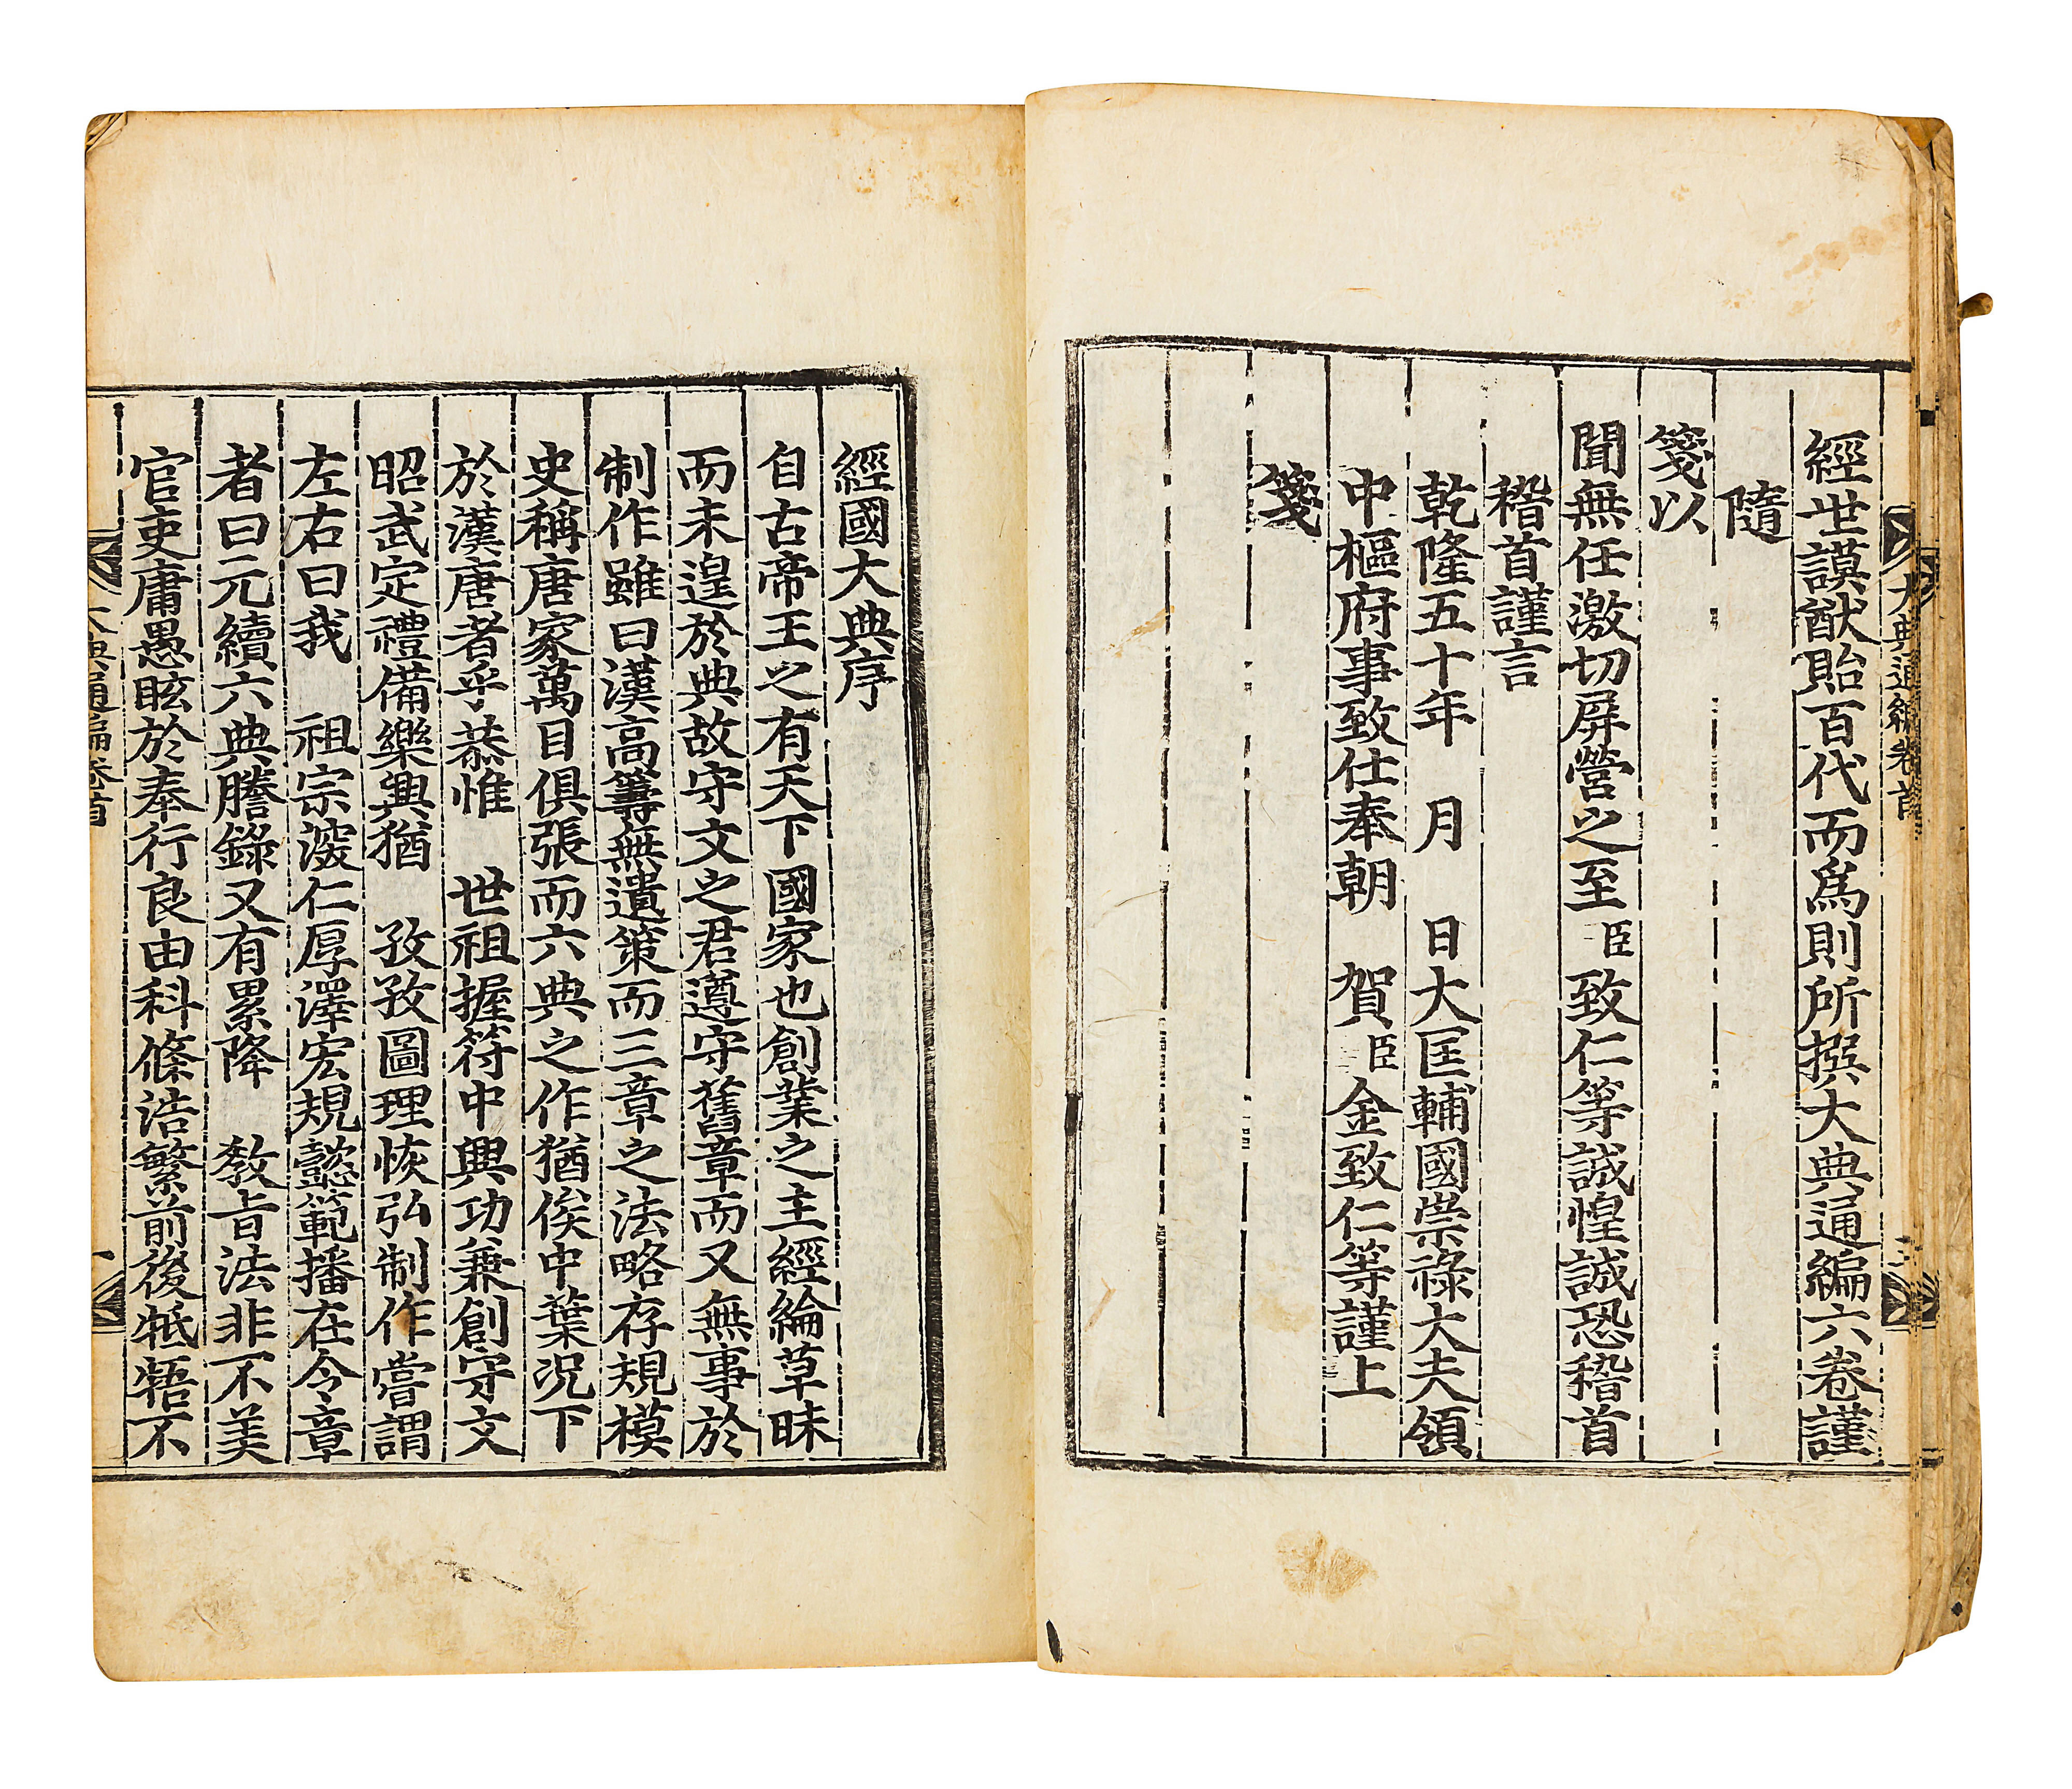 經世謨猷貽百代而爲則所撰大典通編六卷謹
隨
箋以
聞無任激切屛營之至臣致仁等誠惶誠恐稽首
稽首謹言
乾隆五十年 月 日大匡輔國崇祿大夫領
中樞府事致仕奉朝 賀臣金致仁等謹上
箋
大典通編卷首
經國大典序
自古帝王之有天下國家也創業之主經綸草昧
而未遑於典故守文之君遵守舊章而又無事於
制作雖曰漢高筭無遺策而三章之法略存規模
史稱唐家萬目俱張而六典之作猶俟中葉况下
於漢唐者乎恭惟 世祖握符中興功兼創守文
昭武定禮備樂興猶 孜孜圖理恢弘制作嘗謂
左右曰我 祖宗深仁厚澤宏規懿範播在令章
者曰元續六典謄錄又有累降 敎旨法非不美
官吏庸愚眩於奉行良由科條浩繁前後牴牾不
大典通編卷首
一